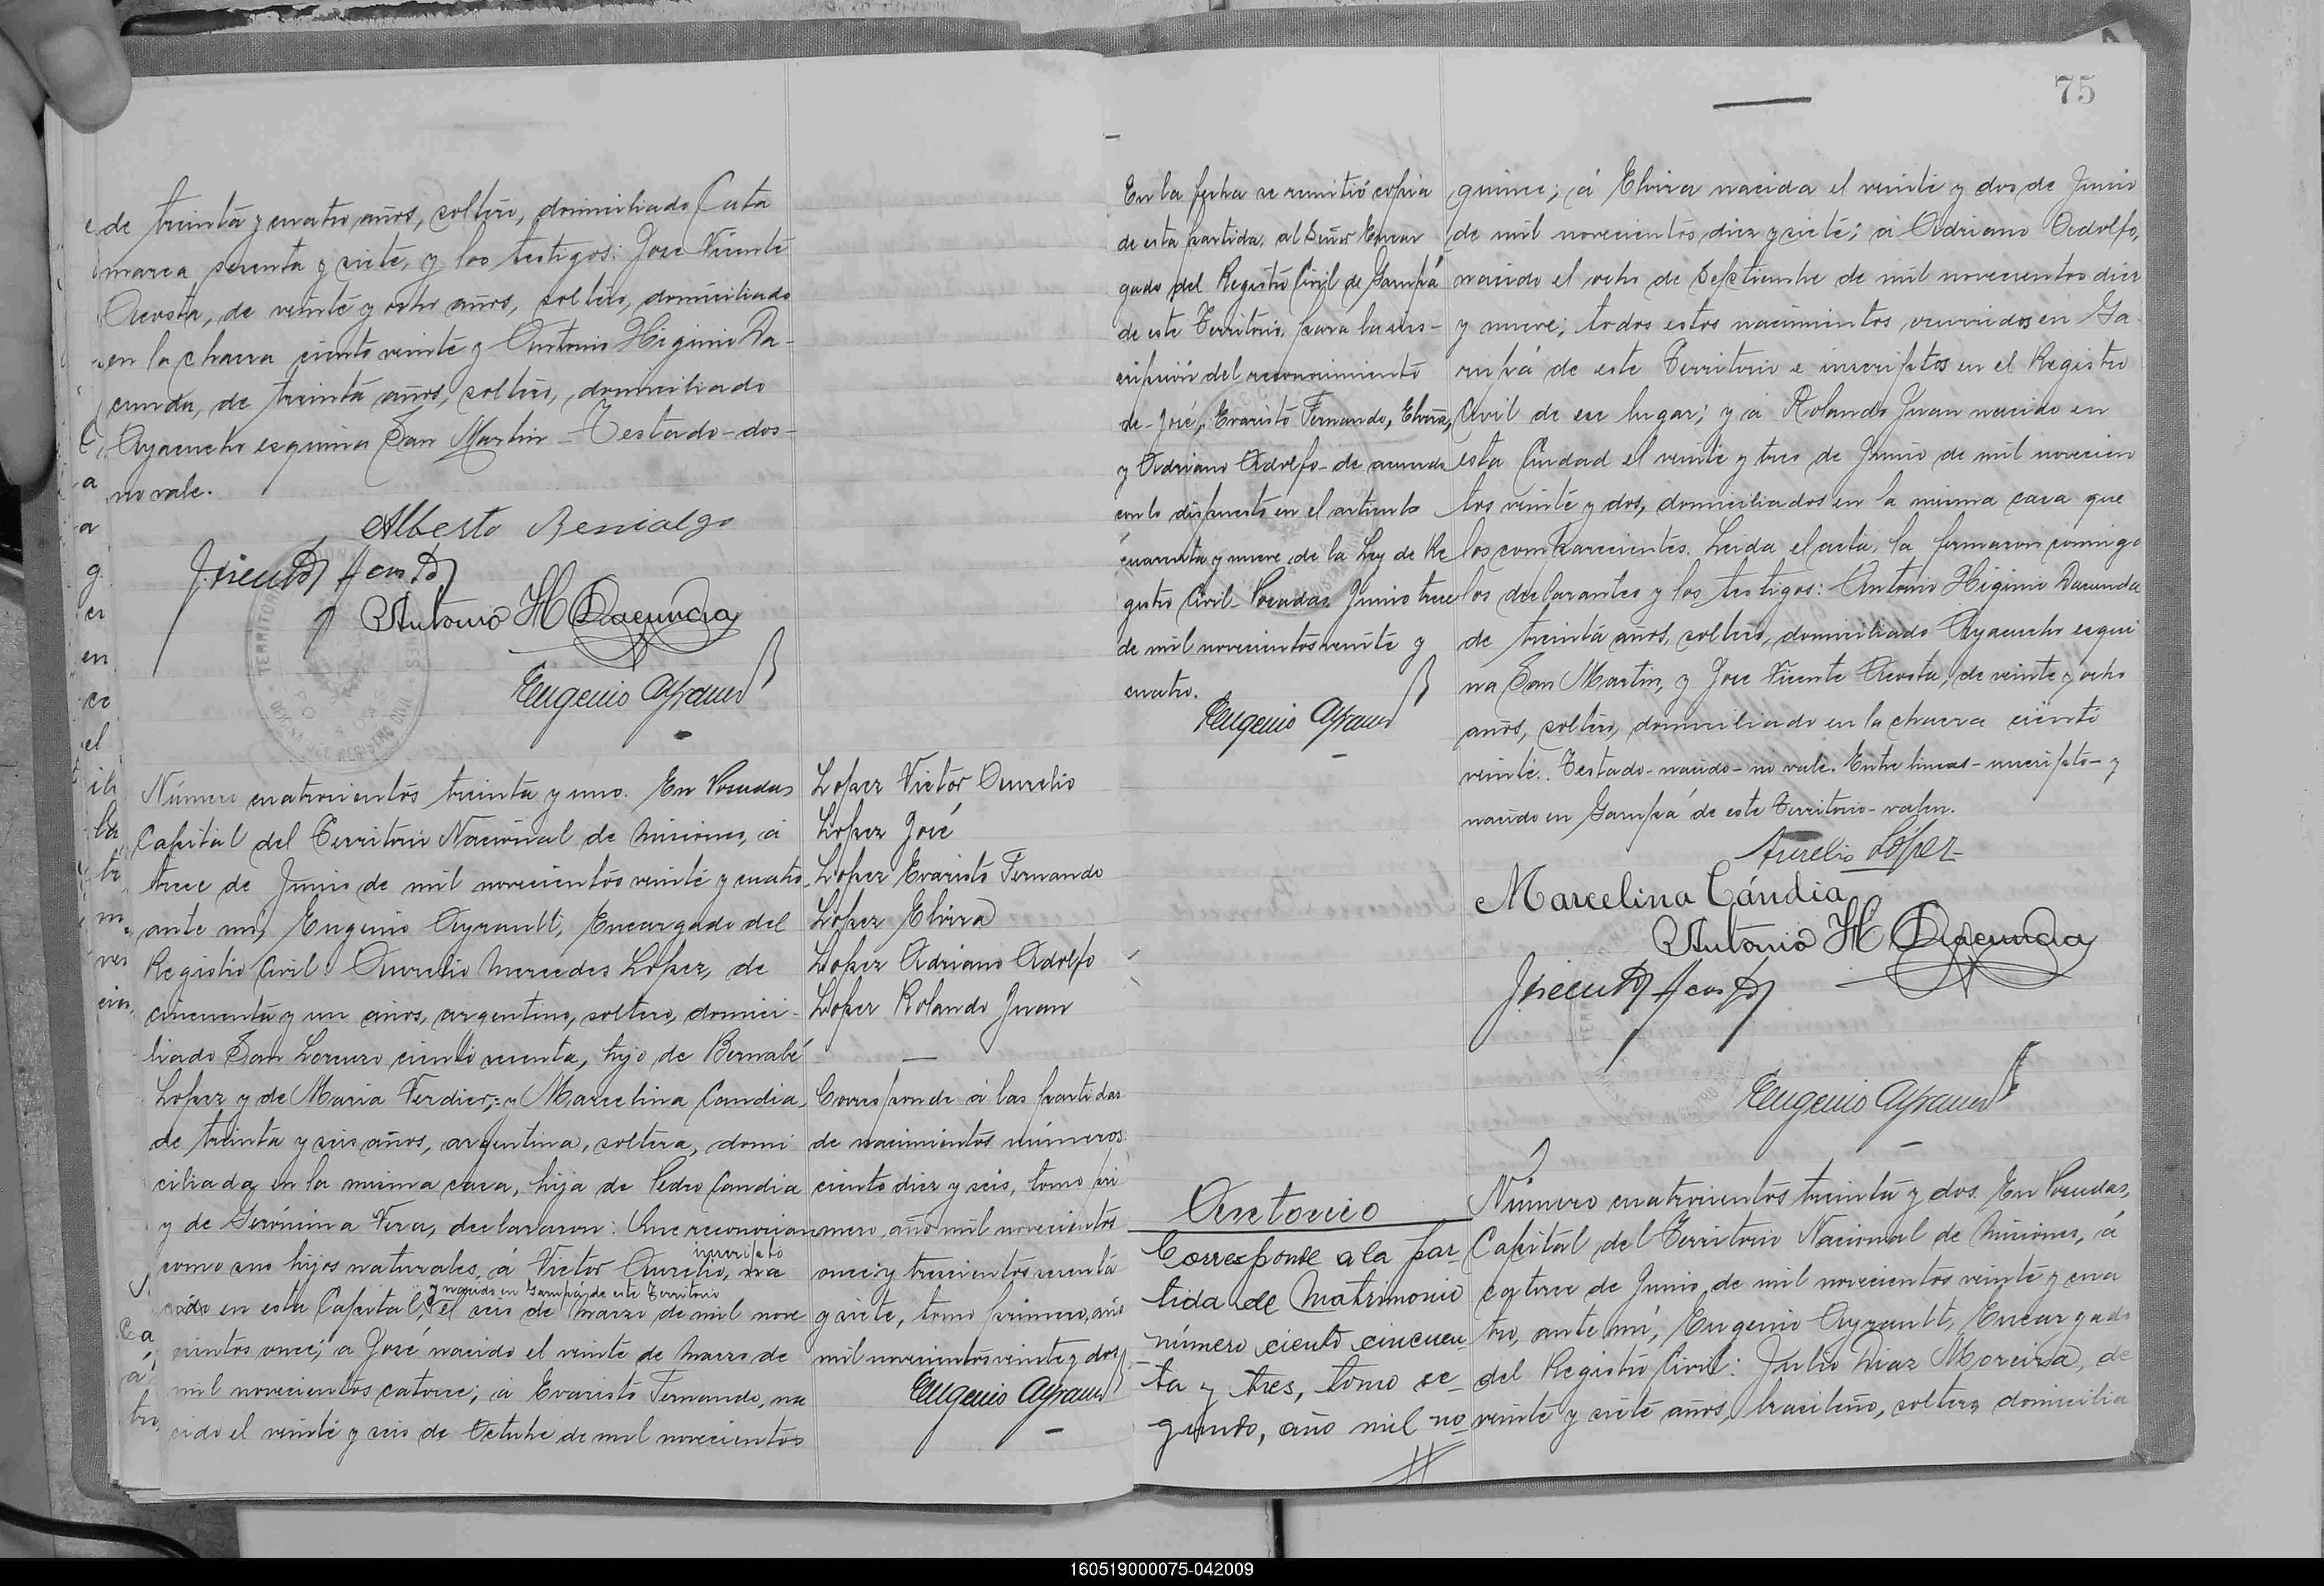 75
de treinta y cuatro años, soltero, domiciliado Cata
marca sesenta y siete, y los testigos: José Vicente
Acosta, de veinte y ocho años, soltero, domiciliado
en la chacra ciento veinte y Antonio Higinio Da-
cunda, de treinta años, soltero, domiciliado
Ayacucho esquina San Martin - Testado - dos -
no vale.
Alberto Benialgo
J. Vicente Acosta
Antonio H Dacunda
Eugenio Ayrault
Número cuatrocientos treinta y uno. En Posadas
Capital del Territorio Nacional de Misiones, á
trece de Junio de mil novecientos veinte y cuatro
ante mi, Eugenio Ayrault, Encargado del
Registro Civil: Aurelio Mercedes Lopez, de
cincuenta y un años, argentino, soltero, domici-
liado San Lorenzo ciento sesenta, hijo de Bernabé
Lopez y de Maria Verdier; y Marcelina Candia,
de treinta y seis años, argentina, soltera, domi
ciliada en la misma casa, hija de Pedro Candia
y de Gerónima Vera, declararon: Que reconocian
como sus hijos naturales, á Victor Aurelio, na
inscripto
cido en esta Capital, el seis de Marzo de mil nove
y nacido en Garupá de este Territorio
cientos once; a José nacido el veinte de Marzo de
mil novecientos catorce; á Evaristo Fernando, na
cido el veinte y seis de Octubre de mil novecientos
Lopez Victor Aurelio
Lopez José
Lopez Evaristo Fernando
Lopez Elvira
Lopez Adriano Adolfo
Lopez Rolando Juan
Corresponde á las partidas
de nacimientos números
ciento diez y seis, tomo pri
mero, año mil novecientos
once y trescientos sesenta
y siete, tomo primero, año
mil novecientos veinte y dos
Eugenio Ayrault
En la fecha se remitió copia
de esta partida, al Señor Encar
gado del Registro Civil de Garupá
de este Territorio, para la ins-
cripción del reconocimiento
de - José, Evaristo Fernando, Elvira,
y Adriano Adolfo - de acuerdo
con lo dispuesto en el artículo
cuarenta y nueve de la Ley de Re
gistro Civil - Posadas Junio trece
de mil novecientos veinte y
cuatro.
Eugenio Ayrault
quince; á Elvira nacida el veinte y dos de Junio
de mil novecientos diez y siete; á Adriano Adolfo,
nacido el ocho de Septiembre de mil novecientos diez
y nueve; todos estos nacimientos, ocurridos en Ga
rupá de este Territorio e inscriptos en el Registro
Civil de ese lugar; y á Rolando Juan nacido en
esta Ciudad el veinte y tres de Junio de mil novecien
tos veinte y dos, domiciliados en la misma casa que
los comparecientes. Leida el acta, la firmaron conmigo
los declarantes y los testigos: Antonio Higinio Dacunda
de treinta años, soltero, domiciliado Ayacucho esqui
na San Martin, y José Vicente Acosta, de veinte y ocho
años, soltero, domiciliado en la chacra ciento
veinte. Testado - nacido - no vale. Entre lineas - inscripto - y
nacido en Garupá de este Territorio - valen.
Aurelio López
Marcelina Cándia
Antonio H Dacunda
J. Vicente Acosta
Eugenio Ayrault
Antonio
Corresponde a la par-
tida de Matrimonio
número ciento cincuen
ta y tres, tomo se-
gundo, año mil no
Número cuatrocientos treinta y dos. En Posadas,
Capital del Territorio Nacional de Misiones, á
catorce de Junio de mil novecientos veinte y cua
tro, ante mi, Eugenio Ayrault, Encargado
del Registro Civil: Julio Diaz Moreira, de
veinte y siete años, brasileño, soltero domicilia
160519000075-042009